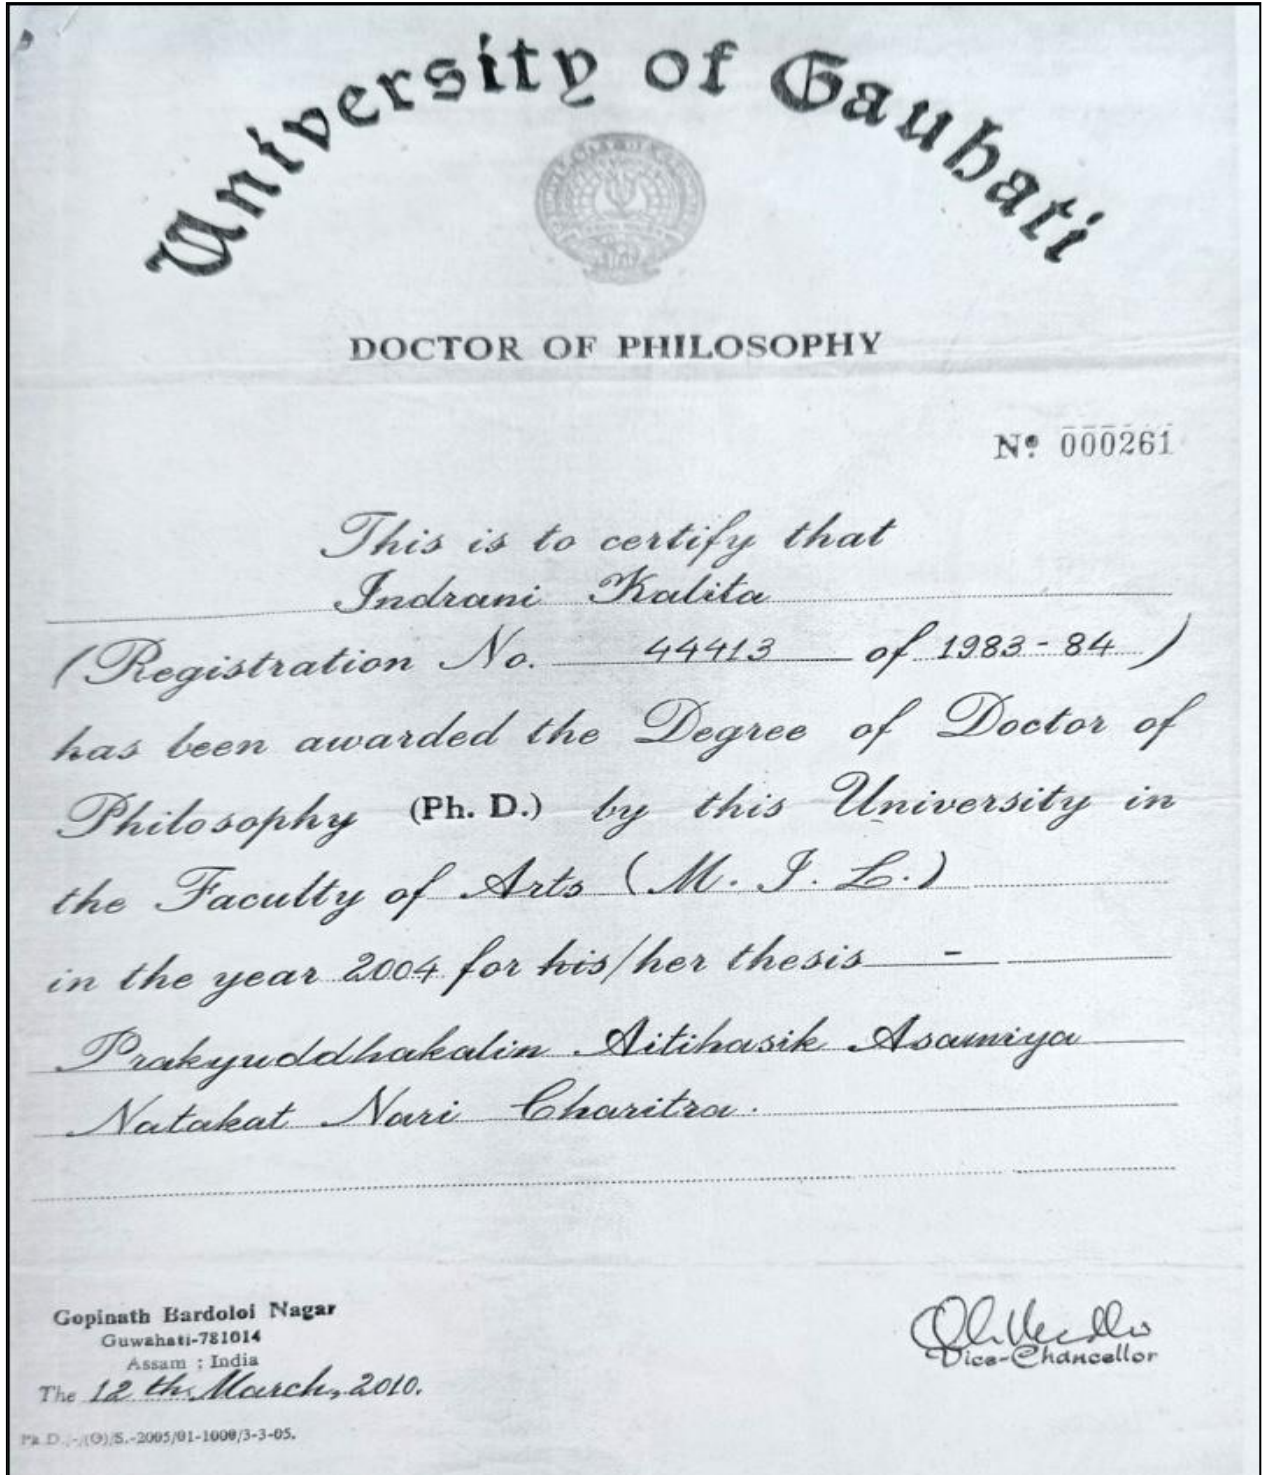 University of Gauhati
DOCTOR OF PHILOSOPHY
Nº 000261
This is to certify that
Indrani Kalita
(Registration No. 44413 of 1983-84)
has been awarded the Degree of Doctor of
Philosophy (Ph. D.) by this University in
the Faculty of Arts (M. I. L.)
in the year 2004 for his/her thesis -
Prakyuddhakalin Aitihasik Asamiya
Natakat Nari Charitra.
Gopinath Bardoloi Nagar
Guwahati-781014
Assam ; India
The 12th March, 2010.
Vice-Chancellor
Ph.D.-/(G)/S.-2005/01-1000/3-3-05.